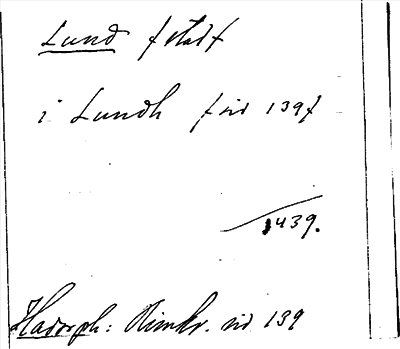 Lund f stadt
i Lundh f sid 139 f
1439.
Hadorph: Rimkr. sid 139